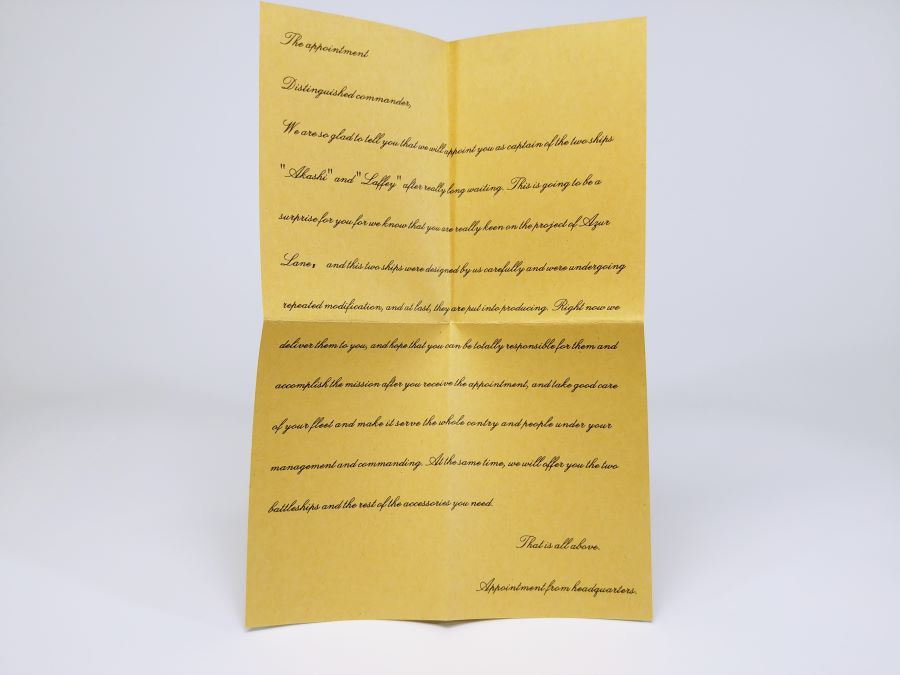 The appointment
Distinguished commander,
We are so glad to tell you that we will appoint you as captain of the two ships
"Akashi" and "Laffey" after really long waiting. This is going to be a
surprise for you for we know that you are really keen on the project of Azur
Lane, and this two ships were designed by us carefully and were undergoing
repeated modification, and at last, they are put into producing. Right now we
deliver them to you, and hope that you can be totally responsible for them and
accomplish the mission after you receive the appointment, and take good care
of your fleet and make it serve the whole contry and people under your
management and commanding. At the same time, we will offer you the two
battleships and the rest of the accessories you need.
That is all above.
Appointment from headquarters.